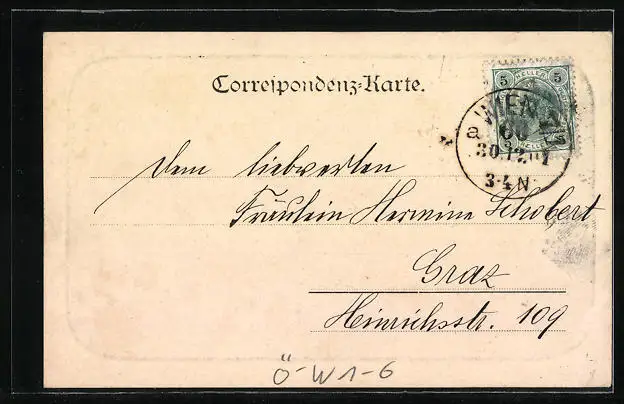 Correspondenz-Karte.
5 HELLER 5
WIEN
a
30.12.01
3-4N
Dem liebwerten
Fräulein Hermine Schobert
Graz
Heinrichsstr. 109
Ö-W1-6